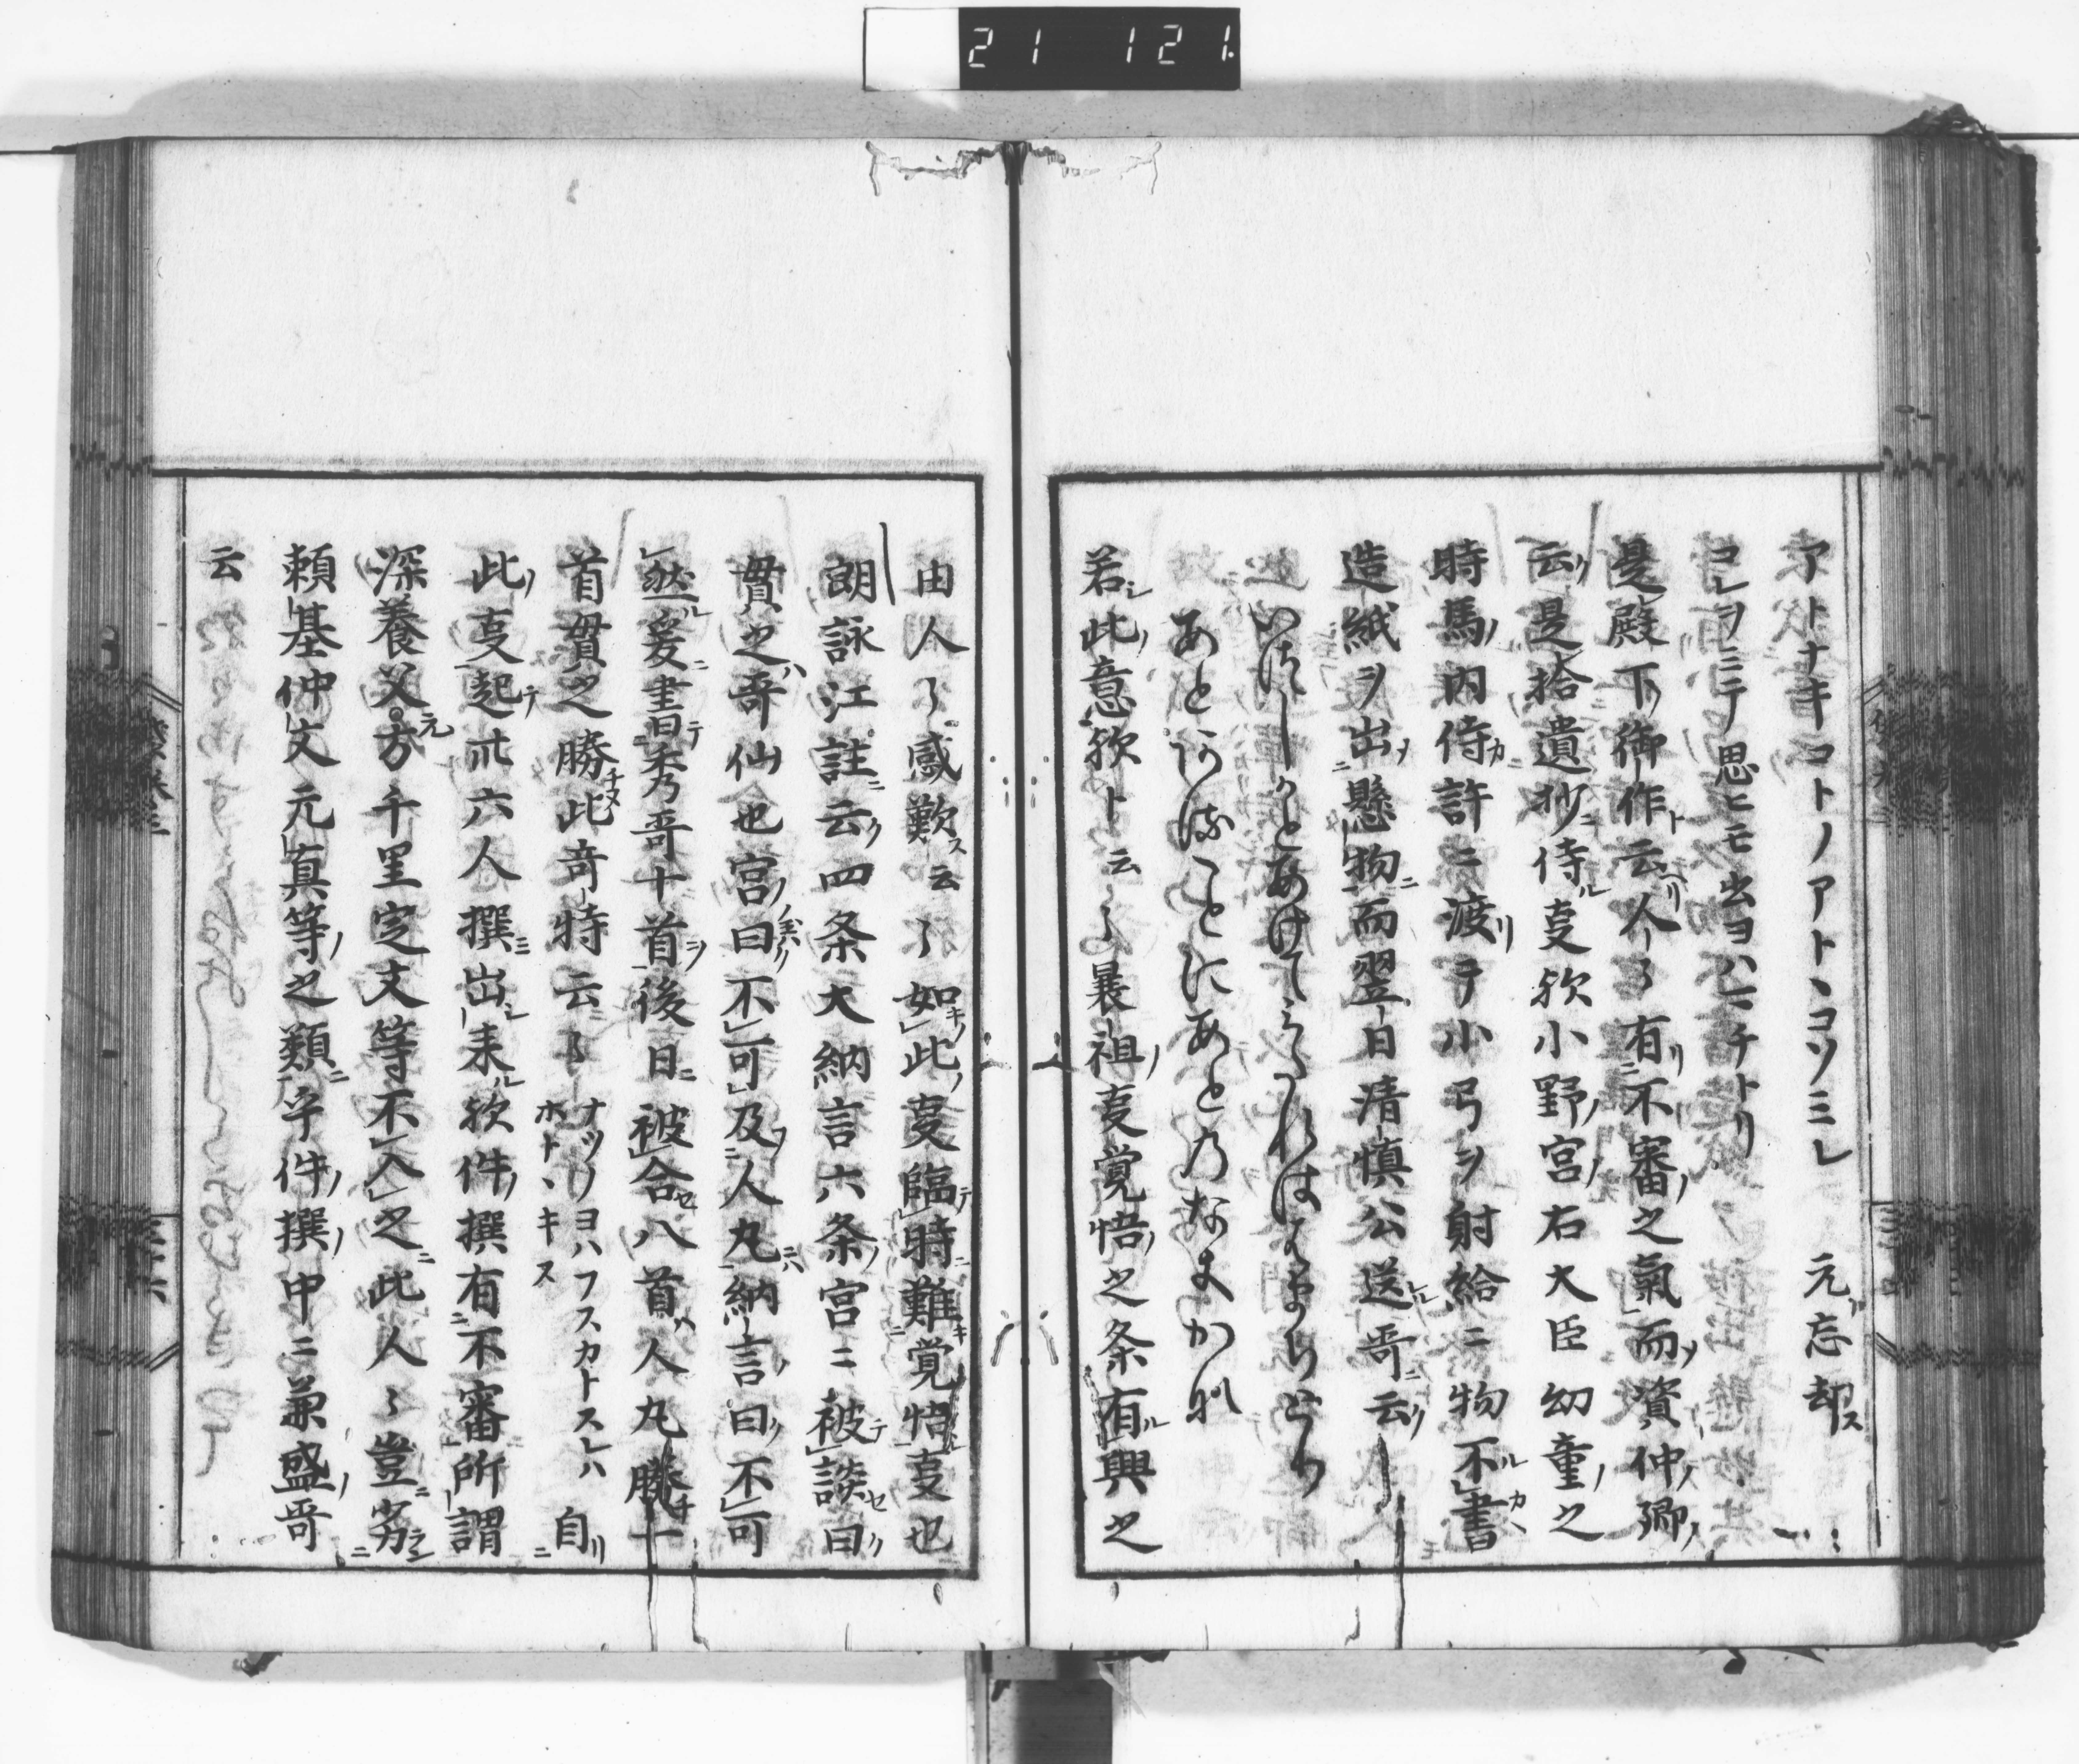 21 121
アトナキコトノアトヽコソミレ 元忘却ス
コレヲミテ思ヒモ出ヨハマチトリ
是殿下御作云人々有不審之氣而資仲卿
云是拾遺抄侍叓欤小野宮右大臣幼童之
時馬内侍許ニ渡リテ小弓ヲ射給ニ物不書
造紙ヲ出懸物而翌日清慎公送哥云
若此意欤ト云々曩祖叓覚悟之条有興之
由人々感歎云々如此叓臨時難覚悟叓也
朗詠江註云四条大納言六条宮ニ被談曰
貫之哥仙也宮曰不可及人丸納言曰不可
然爰書秀哥十首後日被合八首人丸勝一
首貫之勝此奇特云々 ナツノヨハフスカトスレハ 自
ホトヽキス
此叓起卅六人撰出来欤件撰有不審所謂
深養父元方千里定文等不入之此人々豈劣
頼基仲文元真等之類乎件撰中ニ兼盛哥
云